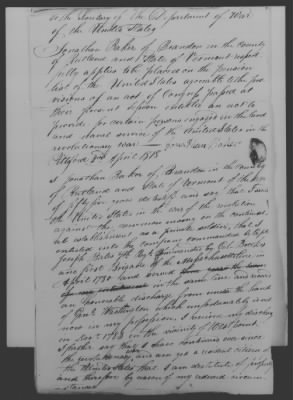 to the Secretary of the Department of War
of the United States
Jonathan Baker of Brandon in the County
of Rutland and State of Vermont respect
fully applies to be placed on the pension
list of the United States agreeable to the pro
visions of an act of Congress passed at
their present session entitled an act to
provide for certain persons engaged in the land
and naval service of the United States in the
revolutionary war
Pittsford 3rd April 1818
I Jonathan Baker of Brandon in the County
of Rutland and State of Vermont of the age
of fifty five years do testify and say that I served
the United States in the war of the revolution
against the common enemy on the continen
tal establishment as a private soldier, that I
enlisted into the company commanded by Capt
Joseph Bates Regt Commanded by Col.
and first Brigade of the Massachusetts line in
April 1780 and served
in the same line and received
an honorable discharge from under the hand
of Genl Washington which is not
now in my possession. I received my discharge
in 1783 in the vicinity of West Point.
I further say that I have continued ever since
the revolutionary war and am yet a resident citizen of
the United States that I am destitute of property
and therefore by reason of my reduced circum
stances